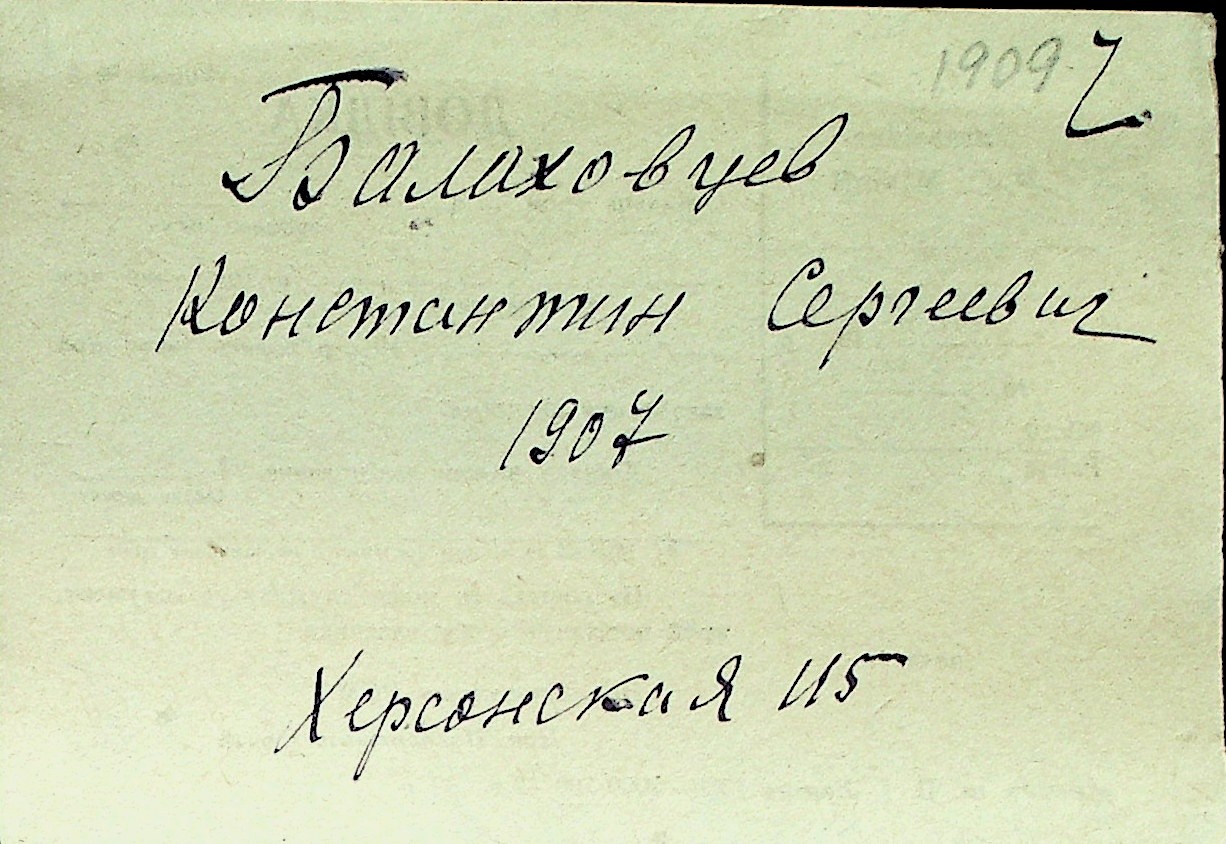 1909
Балаховцев
Константин Сергеевич
1907
Херсонская 115